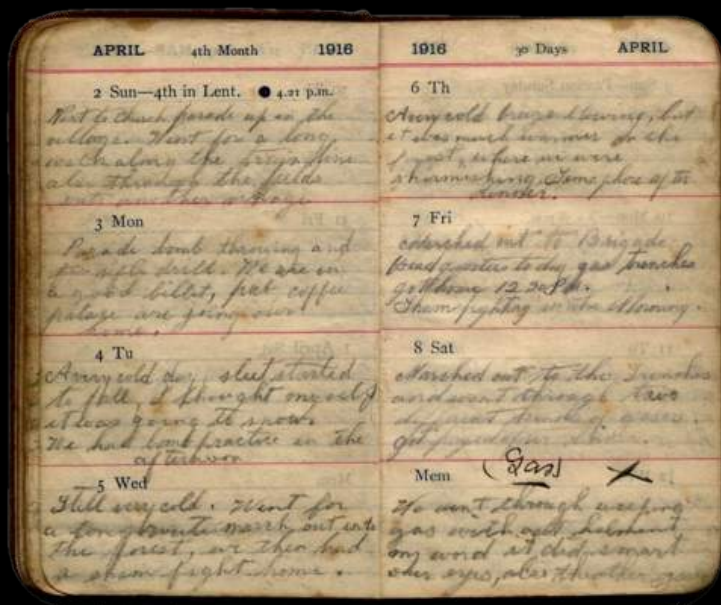 APRIL 4th Month 1916
2 Sun—4th in Lent. ● 4.21 p.m.
Went to Church parade up in the
village. Went for a long
walk along the line
also through the fields
3 Mon
Parade bomb throwing and
drill. We are in
a good billet, coffee
are going
4 Tu
A very cold day, sleet started
to fall, I thought myself
it was going to snow.
We had bomb practice in the
afternoon
5 Wed
Still very cold. Went for
a long route march out into
the forest, we then had
a sham fight home.
1916 30 Days APRIL
6 Th
A very cold breeze blowing, but
it was much warmer in the
forest, where we were
skirmishing. after
dinner.
7 Fri
Marched out to Brigade
Headquarters to dig gas trenches
got home 12.20 P.M.
Sham fighting in the Morning.
8 Sat
Marched out to the Trenches
and went through two
different kinds of gases.
got
Mem (Gas) X
We went through weeping
gas without helment
my word it did smart
our eyes, also the other gas